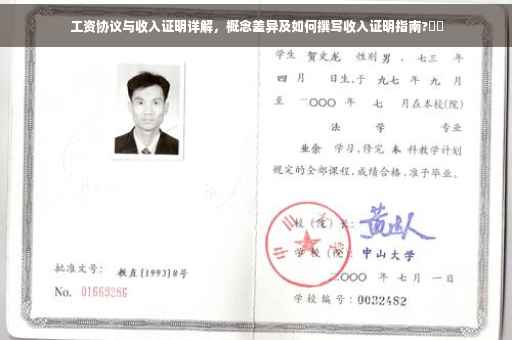 工资协议与收入证明详解，概念差异及如何撰写收入证明指南?
学生 贺文龙 性别 男 、七三 年
四 月 日生,于 九七 年 九 月
至 二〇〇〇 年 七 月在本校(院)
法 学 专业
业余 学习,修完 本 科教学计划
规定的全部课程,成绩合格,准予毕业。
校 (院) 长:
学 校 (院): 中山大学
二〇〇〇 年 七 月 一 日
批准文号: 教直(1993)8号
No. 01669286
学校编号: 0032482